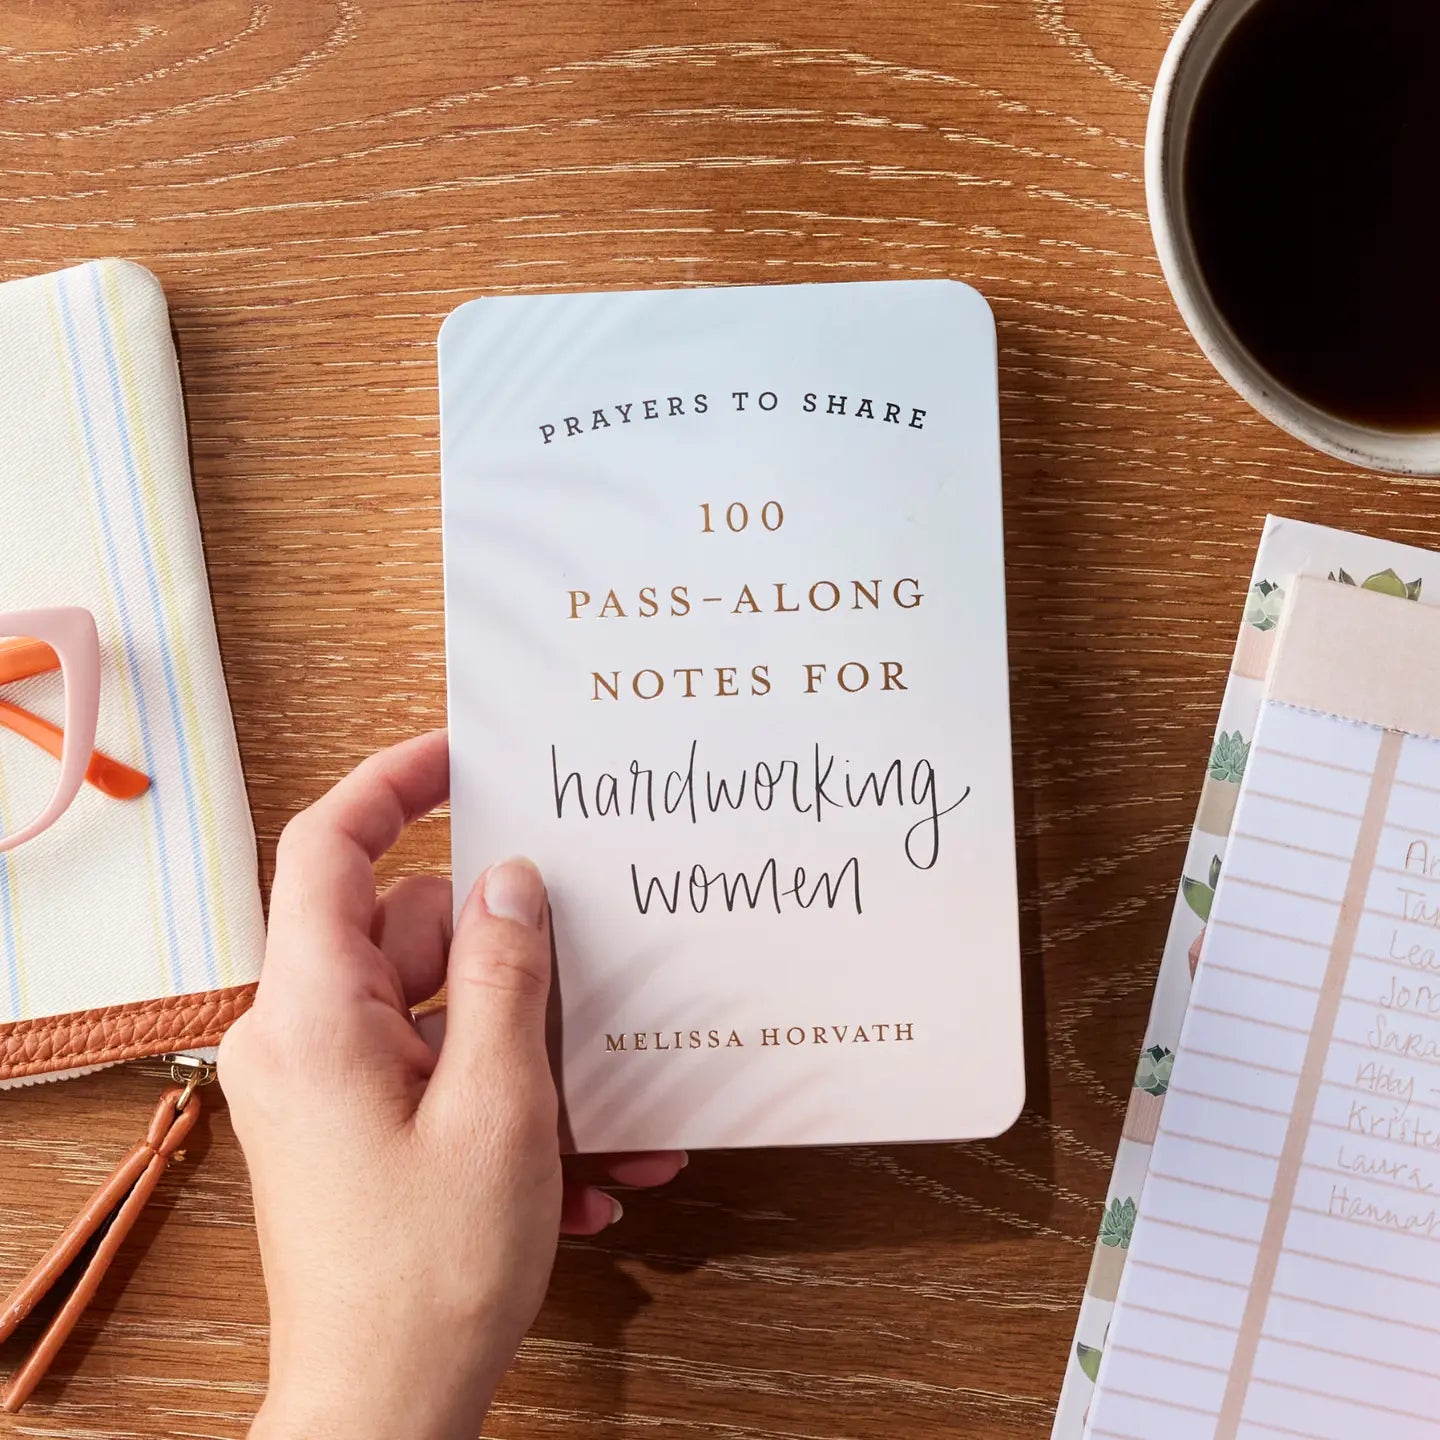 PRAYERS TO SHARE
100
PASS-ALONG
NOTES FOR
hardworking
women
MELISSA HORVATH
Sara
Abby -
Laura
Hannah